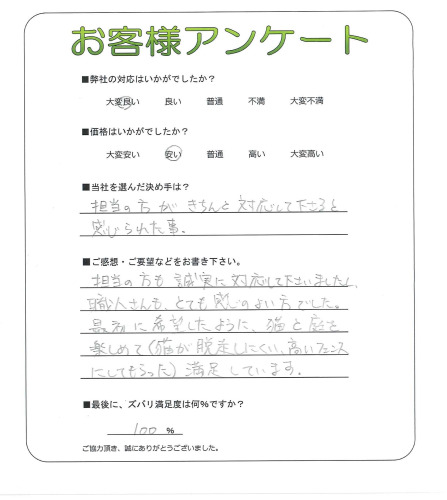 お客様アンケート
■弊社の対応はいかがでしたか？
大変良い 良い 普通 不満 大変不満
■価格はいかがでしたか？
大変安い 安い 普通 高い 大変高い
■当社を選んだ決め手は？
担当の方が きちんと対応して下さると
感じられた事。
■ご感想・ご要望などをお書き下さい。
担当の方も誠実に対応して下さいましたし、
職人さんも、とても感じのよい方でした。
最初に希望したように、猫と庭を
楽しめて(猫が脱走しにくい、高いフェンス
にしてもらった)満足しています。
■最後に、ズバリ満足度は何%ですか？
100 %
ご協力頂き、誠にありがとうございました。